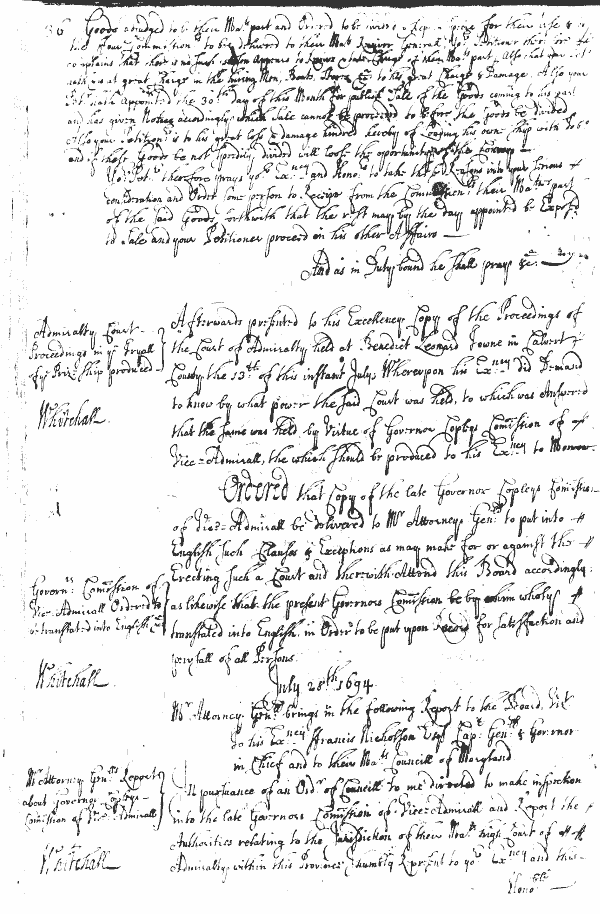 36 Goods adjudged to be their Maᵗˢ part and Ordered to be
complains that there is no such appears to of their Maᵗˢ part, Also that your
with us at great Charge in the hireing Men, Boats, Stores &c to his great Charge & Damage. Also your
Petʳ hath Appointed the 30ᵗʰ day of this Month for publick Sale of the Goods coming to his part
and has given Notice accordingly, which Sale cannot be proceeded to before the goods be divided
Also your Petitionʳ is to his great loss & damage hindred hereby of his own Ship with
and if those Goods be not speedily divided will loose the opportunity of the
Yoʳ Petʳ therefore prays yoʳ Exⁿᶜʸ and Honoʳˢ to take the pʳmisses into your serious
consideration and Order some person to Receive from the their Maᵗⁱᵉˢ part
of the said Goods forthwith that the rest may by the day appointed be Exposed
to Sale and your Petitioner proceed in his other Affairs
And as in Duty bound he shall pray &c
Admiralty Court
Proceedings in yᵉ Tryall
of yᵉ Prize Ship produced
Whitehall
Afterwards presented to his Excellency Copy of the Proceedings of
the Court of Admiralty held at Benedict Leonard Towne in Calvert
County the 13ᵗʰ of this instant July, Whereupon his Exⁿᶜʸ did Demand
to know by what power the said Court was held, to which was Answered
that the same was held by Virtue of Governor Copleys Comission of
Vice-Admirall, the which should be produced to his Exⁿᶜʸ to Morrow.
Ordered that Copy of the late Governor Copleys Comission
of Vice-Admirall be delivered to Mʳ Attorneys Genˡˡ to put into
English such Clauses & Exceptions as may make for or against the
Erecting such a Court and therewith Attend this Board accordingly.
Governʳˢ Comission of
Vice-Admirall Ordered to
be translated into English &c
Whitehall
as likewise that the present Governors Comission be by him wholy
translated into English in Order to be put upon Record for satisfaction and
perusall of all Persons.
July 28ᵗʰ 1694
Mʳ Attorney Genˡˡ brings in the following Report to the Board, Vizᵗ
To his Exⁿᶜʸ Francis Nicholson Esqʳ Capᵗ Genˡˡ & Governor
in Chief and to their Maᵗˢ Councill of Maryland
Mʳ Attorney Genˡˡˢ Report
about Governor Copleys
Comission of Vice Admirall
Whitehall
In pursuance of an Ordʳ of Councill to me directed to make inspection
into the late Governors Comission of Vice-Admirall and Report the
Authorities relating to the Jurisdiction of their Maᵗˢ high Court of
Admiralty within this Province I humbly Represent to yoʳ Exⁿᶜʸ and this
Honoᵇˡᵉ